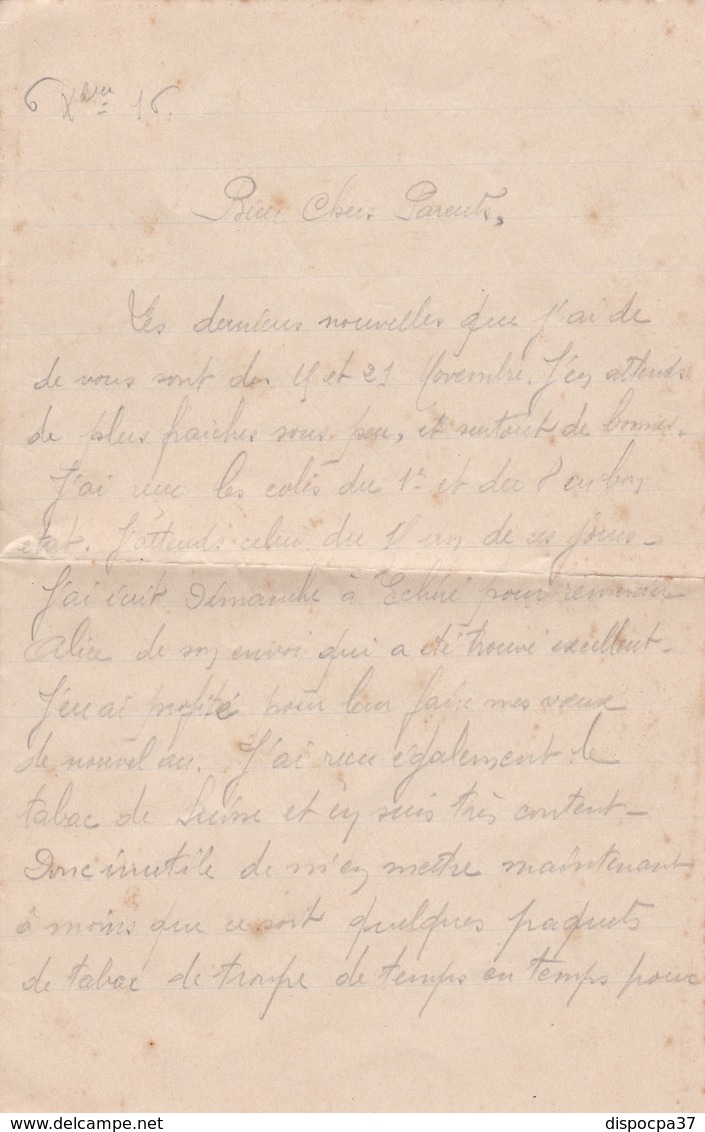 6 Xbre 16.
Bien Chers Parents,
Les dernières nouvelles que j'ai de
de vous sont des 19 et 21 Novembre. J'en attends
de plus fraîches sous peu, et surtout de bonnes.
J'ai reçu les colis du 1er et du 8 en bon
état. J'attends celui du 15 un de ces jours -
J'ai écrit Dimanche à Echiré pour remercier
Alice de son envoi qui a été trouvé excellent -
J'en ai profité pour leur faire mes vœux
de nouvel an. J'ai reçu également le
tabac de Suisse et en suis très content -
Donc inutile de m'en mettre maintenant
à moins que ce soit quelques paquets
de tabac de troupe de temps en temps pour
www.delcampe.net
dispocpa37